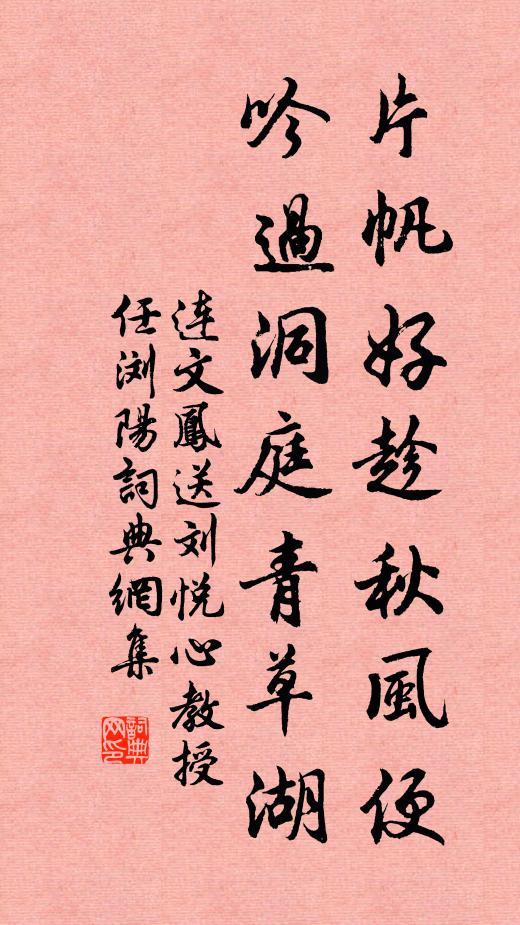 片帆好趁秋風便
吟過洞庭青草湖
连文鳳送刘悦心教授
任浏陽詞典網集
詞典网印